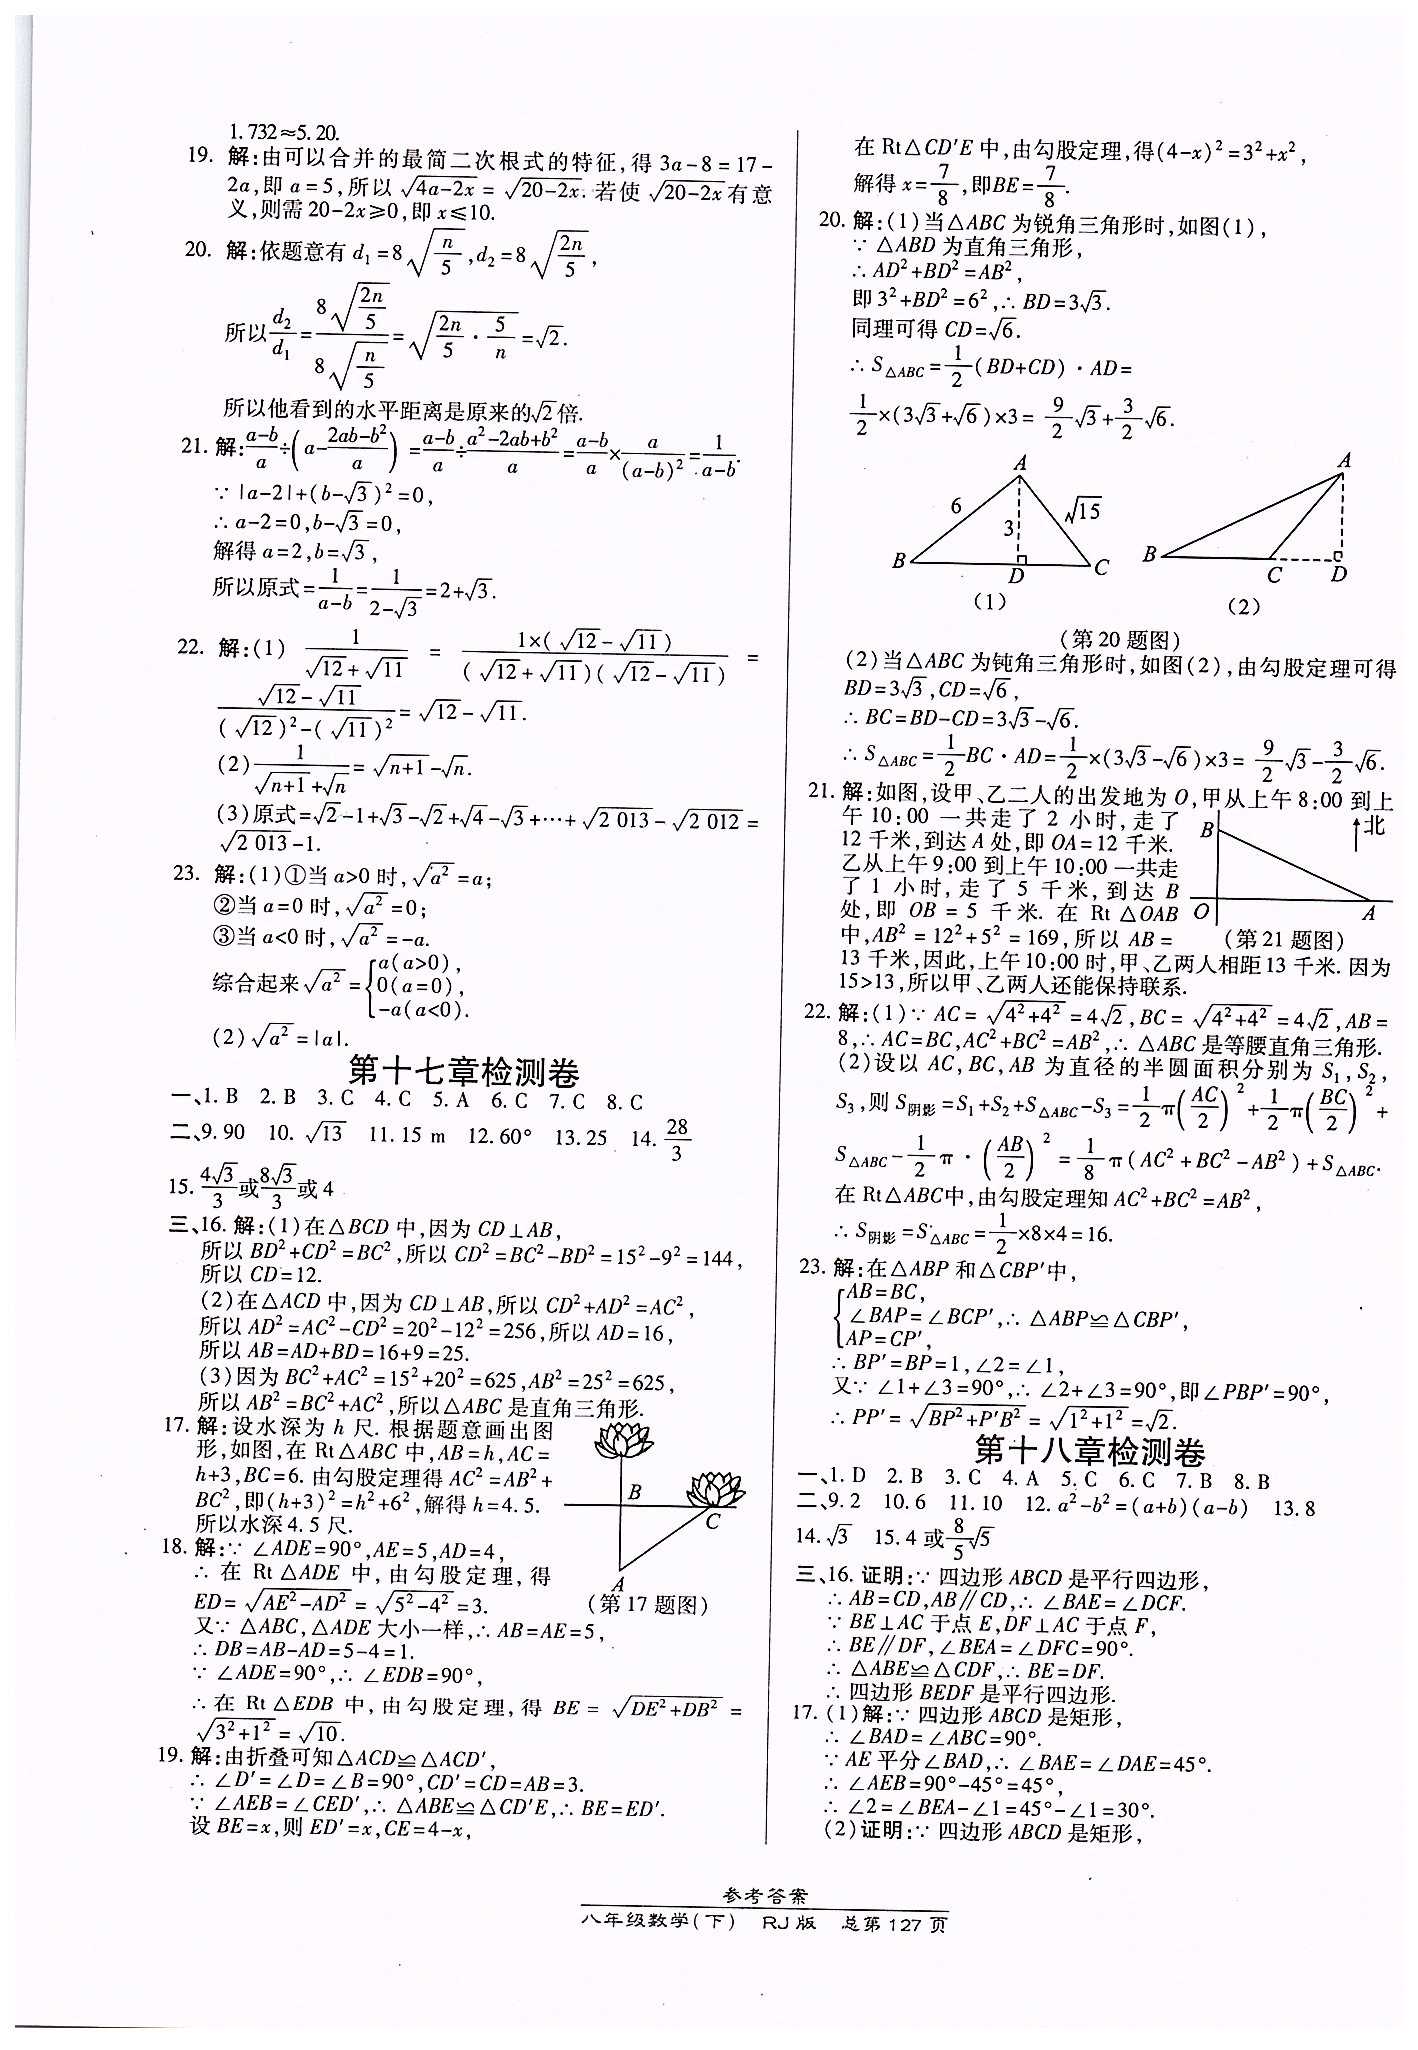 1.732≈5.20.
19. 解:由可以合并的最简二次根式的特征,得 3a-8=17-
2a,即 a=5,所以 √(4a-2x) = √(20-2x). 若使 √(20-2x) 有意
义,则需 20-2x≥0,即 x≤10.
20. 解:依题意有 d₁=8√(n/5),d₂=8√(2n/5),
所以 d₂/d₁ = 8√(2n/5) / 8√(n/5) = √(2n/5 · 5/n) = √2.
所以他看到的水平距离是原来的√2倍.
21. 解: (a-b)/a ÷ (a - (2ab-b²)/a) = (a-b)/a ÷ (a²-2ab+b²)/a = (a-b)/a × a/(a-b)² = 1/(a-b).
∵ |a-2|+(b-√3)²=0,
∴ a-2=0,b-√3=0,
解得 a=2,b=√3,
所以原式= 1/(a-b) = 1/(2-√3) =2+√3.
22. 解:(1) 1/(√12+√11) = 1×(√12-√11) / (√12+√11)(√12-√11) =
(√12-√11) / ((√12)²-(√11)²) = √12-√11.
(2) 1/(√(n+1)+√n) = √(n+1)-√n.
(3)原式=√2-1+√3-√2+√4-√3+⋯+√2 013-√2 012=
√2 013-1.
23. 解:(1)①当 a>0 时,√a²=a;
②当 a=0 时,√a²=0;
③当 a<0 时,√a²=-a.
综合起来 √a² = { a(a>0),
0(a=0),
-a(a<0).
(2)√a²=|a|.
第十七章检测卷
一、1. B 2. B 3. C 4. C 5. A 6. C 7. C 8. C
二、9. 90 10. √13 11. 15 m 12. 60° 13. 25 14. 28/3
15. 4√3/3 或 8√3/3 或 4
三、16. 解:(1)在△BCD 中,因为 CD⊥AB,
所以 BD²+CD²=BC²,所以 CD²=BC²-BD²=15²-9²=144,
所以 CD=12.
(2)在△ACD 中,因为 CD⊥AB,所以 CD²+AD²=AC²,
所以 AD²=AC²-CD²=20²-12²=256,所以 AD=16,
所以 AB=AD+BD=16+9=25.
(3)因为 BC²+AC²=15²+20²=625,AB²=25²=625,
所以 AB²=BC²+AC²,所以△ABC 是直角三角形.
17. 解:设水深为 h 尺. 根据题意画出图
形,如图,在 Rt△ABC 中,AB=h,AC=
h+3,BC=6. 由勾股定理得 AC²=AB²+
BC²,即(h+3)²=h²+6²,解得 h=4.5.
所以水深 4.5 尺.
B
C
A
(第 17 题图)
18. 解:∵ ∠ADE=90°,AE=5,AD=4,
∴ 在 Rt△ADE 中,由勾股定理,得
ED=√(AE²-AD²) = √(5²-4²) =3.
又∵ △ABC,△ADE 大小一样,∴ AB=AE=5,
∴ DB=AB-AD=5-4=1.
∵ ∠ADE=90°,∴ ∠EDB=90°,
∴ 在 Rt△EDB 中,由勾股定理,得 BE = √(DE²+DB²) =
√(3²+1²) = √10.
19. 解:由折叠可知△ACD≌△ACD′,
∴ ∠D′=∠D=∠B=90°,CD′=CD=AB=3.
∵ ∠AEB=∠CED′,∴ △ABE≌△CD′E,∴ BE=ED′.
设 BE=x,则 ED′=x,CE=4-x,
在 Rt△CD′E 中,由勾股定理,得(4-x)²=3²+x²,
解得 x=7/8,即BE=7/8.
20. 解:(1)当△ABC 为锐角三角形时,如图(1),
∵ △ABD 为直角三角形,
∴ AD²+BD²=AB²,
即 3²+BD²=6²,∴ BD=3√3.
同理可得 CD=√6.
∴ S△ABC=1/2(BD+CD)·AD=
1/2×(3√3+√6)×3= 9/2√3+3/2√6.
A
6
3
√15
B
D
C
(1)
A
B
C
D
(2)
(第 20 题图)
(2)当△ABC 为钝角三角形时,如图(2),由勾股定理可得
BD=3√3,CD=√6,
∴ BC=BD-CD=3√3-√6.
∴ S△ABC=1/2BC·AD=1/2×(3√3-√6)×3= 9/2√3-3/2√6.
21. 解:如图,设甲、乙二人的出发地为 O,甲从上午 8:00 到上
午 10:00 一共走了 2 小时,走了
12 千米,到达 A 处,即 OA=12 千米.
乙从上午 9:00 到上午 10:00 一共走
了 1 小时,走了 5 千米,到达 B
处,即 OB = 5 千米. 在 Rt△OAB
中,AB²=12²+5²=169,所以 AB=
13 千米,因此,上午 10:00 时,甲、乙两人相距 13 千米. 因为
15>13,所以甲、乙两人还能保持联系.
B
北
O
A
(第 21 题图)
22. 解:(1)∵ AC= √(4²+4²) =4√2,BC= √(4²+4²) =4√2,AB=
8,∴ AC=BC,AC²+BC²=AB²,∴ △ABC 是等腰直角三角形.
(2)设以 AC,BC,AB 为直径的半圆面积分别为 S₁,S₂,
S₃,则 S阴影=S₁+S₂+S△ABC-S₃=1/2π(AC/2)²+1/2π(BC/2)²+
S△ABC-1/2π·(AB/2)²=1/8π(AC²+BC²-AB²)+S△ABC.
在 Rt△ABC中,由勾股定理知 AC²+BC²=AB²,
∴ S阴影=S△ABC=1/2×8×4=16.
23. 解:在△ABP 和△CBP′中,
{ AB=BC,
∠BAP=∠BCP′,∴ △ABP≌△CBP′,
AP=CP′,
∴ BP′=BP=1,∠2=∠1,
又∵ ∠1+∠3=90°,∴ ∠2+∠3=90°,即∠PBP′=90°,
∴ PP′= √(BP²+P′B²) = √(1²+1²) =√2.
第十八章检测卷
一、1. D 2. B 3. C 4. A 5. C 6. C 7. B 8. B
二、9. 2 10. 6 11. 10 12. a²-b²=(a+b)(a-b) 13. 8
14. √3 15. 4 或 8/5√5
三、16. 证明:∵ 四边形 ABCD 是平行四边形,
∴ AB=CD,AB∥CD,∴ ∠BAE=∠DCF.
∵ BE⊥AC 于点 E,DF⊥AC 于点 F,
∴ BE∥DF,∠BEA=∠DFC=90°.
∴ △ABE≌△CDF,∴ BE=DF.
∴ 四边形 BEDF 是平行四边形.
17. (1)解:∵ 四边形 ABCD 是矩形,
∴ ∠BAD=∠ABC=90°.
∵ AE 平分∠BAD,∴ ∠BAE=∠DAE=45°.
∴ ∠AEB=90°-45°=45°,
∴ ∠2=∠BEA-∠1=45°-∠1=30°.
(2)证明:∵ 四边形 ABCD 是矩形,
参考答案
八年级数学(下) RJ版 总第127页